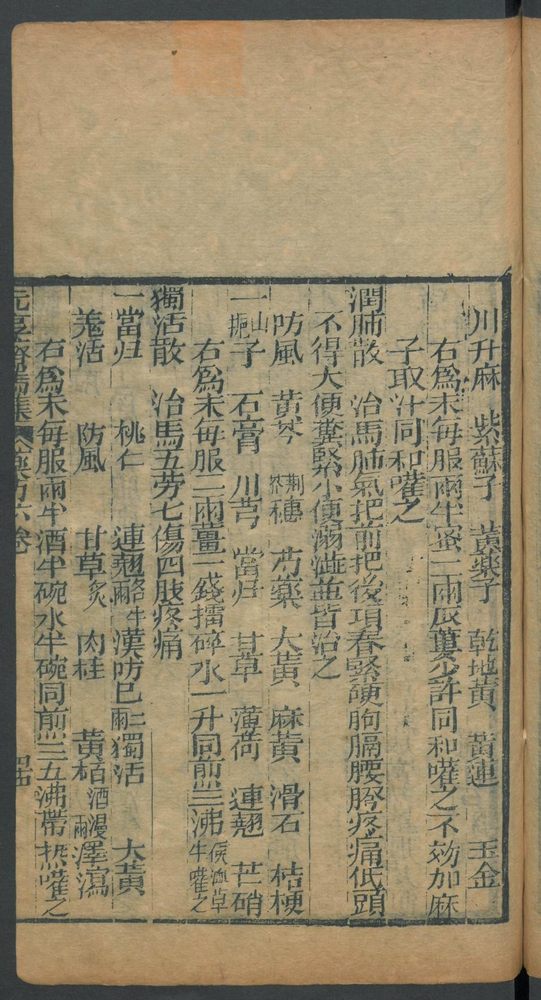 川升麻　紫蘇子　黃藥子　乾地黃　黃連　玉金
右爲末每服兩半蜜二兩灰藋少許同和嚾之不効加麻
子取汁同和嚾之
潤肺散　治馬肺氣把前把後項脊緊硬胸膈腰胯疼痛低頭
不得大便糞緊小便溺澁並皆治之
防風　黃芩　荆芥穗　芍藥　大黃　麻黃　滑石　桔梗
一山梔子　石膏　川芎　當归　甘草　薄荷　連翹　芒硝
右爲末每服二兩薑一錢擂碎水一升同煎三沸候溫草牛嚾之
獨活散　治馬五劳七傷四肢疼痛
一當归　桃仁　連翹各半兩　漢防巳二兩　獨活　大黃
羗活　防風　甘草炙　肉桂　黃栢酒浸兩　澤瀉
右爲末每服兩半酒半碗水半碗同煎三五沸帶热嚾之
元亨療馬集　藥方六卷